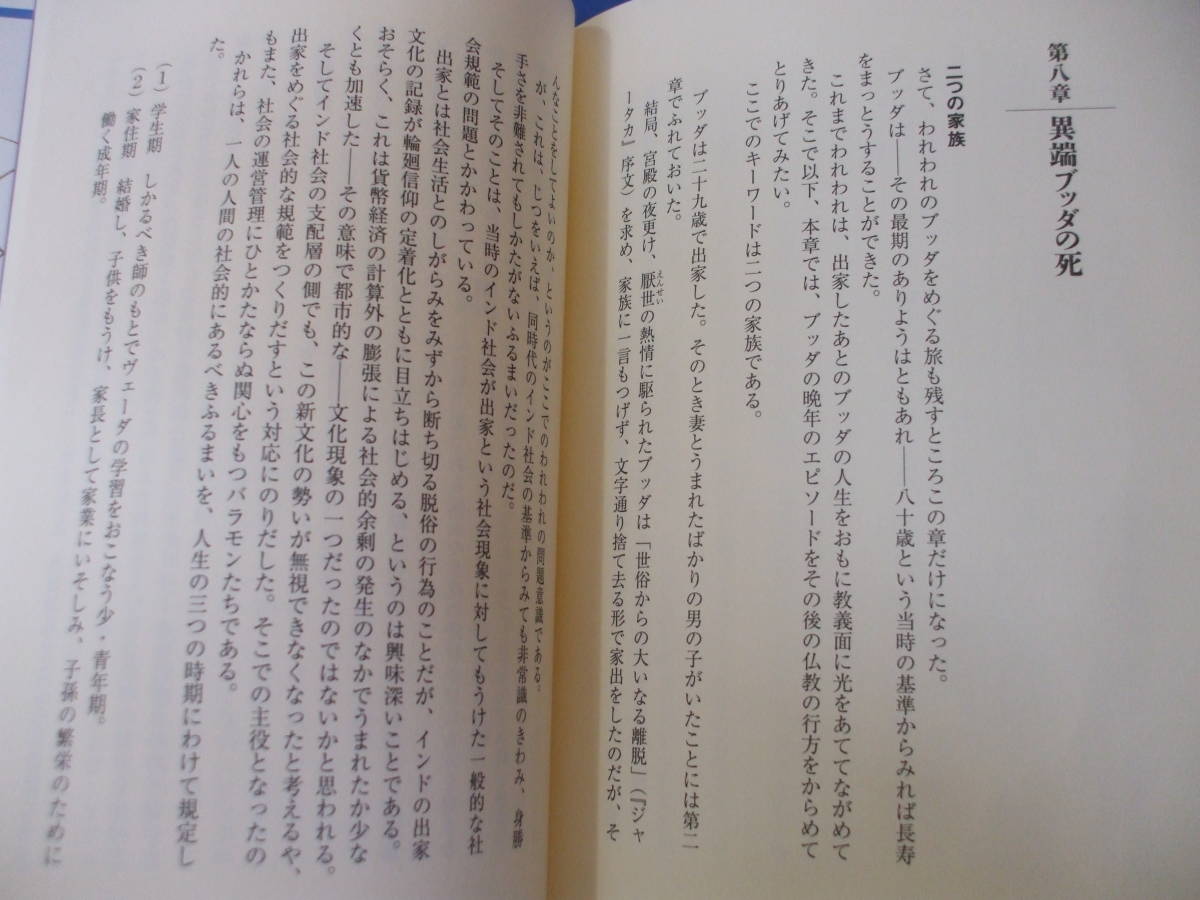 第八章 異端ブッダの死
二つの家族
さて、われわれのブッダをめぐる旅も残すところこの章だけになった。
ブッダは――その最期のありようはともあれ――八十歳という当時の基準からみれば長寿
をまっとうすることができた。
これまでわれわれは、出家したあとのブッダの人生をおもに教義面に光をあててながめて
きた。そこで以下、本章では、ブッダの晩年のエピソードをその後の仏教の行方をからめて
とりあげてみたい。
ここでのキーワードは二つの家族である。
ブッダは二十九歳で出家した。そのとき妻とうまれたばかりの男の子がいたことには第二
章でふれておいた。
結局、宮殿の夜更け、厭世の熱情に駆られたブッダは「世俗からの大いなる離脱」(『ジャ
えんせい
ータカ』序文)を求め、家族に一言もつげず、文字通り捨て去る形で家出をしたのだが、そ
んなことをしてよいのか、というのがここでのわれわれの問題意識である。
が、これは、じつをいえば、同時代のインド社会の基準からみても非常識のきわみ、身勝
手さを非難されてもしかたがないふるまいだったのだ。
そしてそのことは、当時のインド社会が出家という社会現象に対してもうけた一般的な社
会規範の問題とかかわっている。
出家とは社会生活とのしがらみをみずから断ち切る脱俗の行為のことだが、インドの出家
文化の記録が輪廻信仰の定着化とともに目立ちはじめる、というのは興味深いことである。
おそらく、これは貨幣経済の計算外の膨張による社会的余剰の発生のなかでうまれたか少な
くとも加速した――その意味で都市的な――文化現象の一つだったのではないかと思われる。
そしてインド社会の支配層の側でも、この新文化の勢いが無視できなくなったと考えるや、
出家をめぐる社会的な規範をつくりだすという対応にのりだした。そこでの主役となったの
もまた、社会の運営管理にひとかたならぬ関心をもつバラモンたちである。
かれらは、一人の人間の社会的にあるべきふるまいを、人生の三つの時期にわけて規定し
た。
(1) 学生期 しかるべき師のもとでヴェーダの学習をおこなう少・青年期。
(2) 家住期 結婚し、子供をもうけ、家長として家業にいそしみ、子孫の繁栄のために
働く成年期。